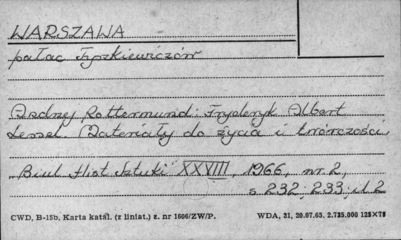 WARSZAWA
pałac Tyszkiewiczów
Andrzej Rottermund: Fryderyk Albert
Lessel. Materiały do życia i twórczości
Biul Hist Sztuki XXVIII, 1966, nr. 2,
s 232, 233, il 2
CWD, B-15b, Karta katal. (z liniat.) z. nr 1606/ZW/P. WDA, 31, 20.07.65, 2.735.000 125×75